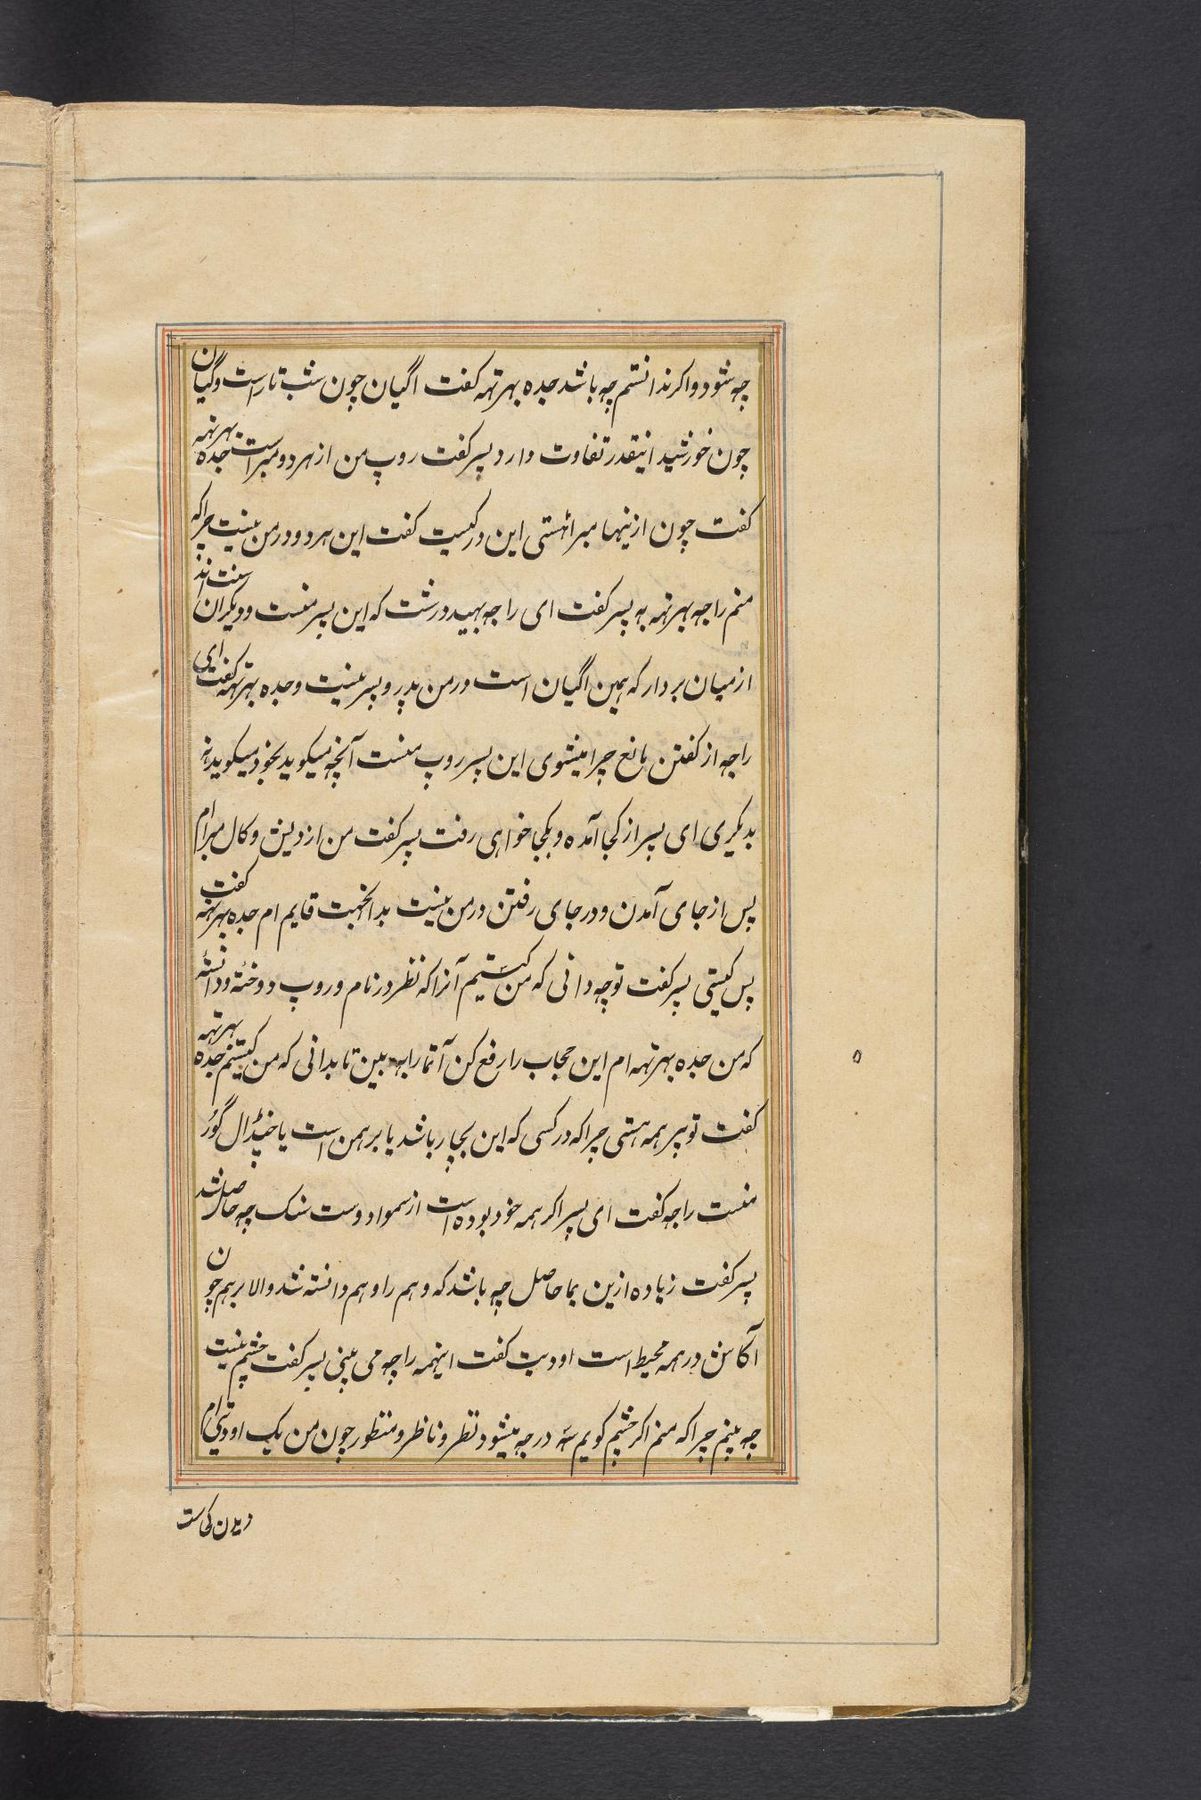 چه شود و اگر ندانستم چه باشد جده بهرتهه گفت اگیان چون شب تار است و گیان
چون خورشید اینقدر تفاوت دارد پسر گفت روپ من از هر دو مبراست جده بهرتهه
گفت چون ازینها مبرا هستی این در کیست گفت این هر دو در من نیست چرا که
منم راجه بهرتهه به پسر گفت ای راجه بهید درشت که این پسر منست و دیگران اند
از میان بردار که همین اگیان است و در من پدر و پسر نیست و جده بهرتهه گفت ای
راجه از گفتن مانع چرا میشوی این پسر روپ منست آنچه میگوید بخود میگوید نه
بدیگری ای پسر از کجا آمده و بکجا خواهی رفت پسر گفت من از دیش و کال مبرا ام
پس از جای آمدن و در جای رفتن در من نیست بدانجهت قایم ام جده بهرتهه گفت
پس کیستی پسر گفت تو چه دانی که من کیستیم آنرا که نظر در نام و روپ دوخته و دانسته
که من جده بهرتهه ام این حجاب را رفع کن آتما را به بین تا بدانی که من کیستم جده بهرتهه
گفت تو بر همه هستی چرا که در کسی که این بچار باشد یا برهمن است یا چنڈال گور
منست راجه گفت ای پسر اگر همه خود بوده است از سمواد دوست سک چه حاصل شد
پسر گفت زیاده ازین بما حاصل چه باشد که وهم را وهم دانسته شد والا برهم چون
آکاش در همه محیط است اودیت گفت اینهمه را چه می بینی پسر گفت چشم نیست
چه بینم چرا که منم اگر چشم گویم سه درجه میشود نظر و ناظر و منظور چون من یک اودیتی ام
دیدن کجاست